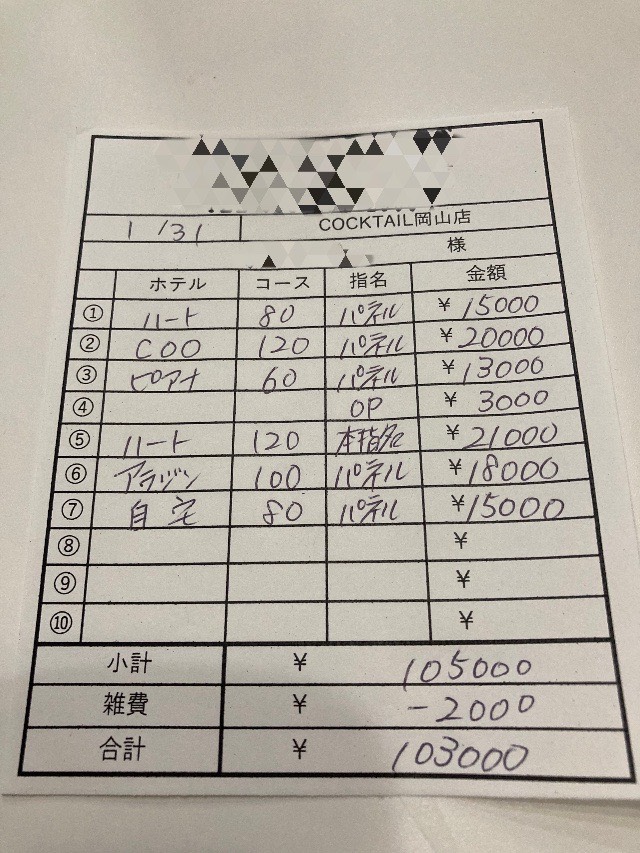 1/31 COCKTAIL岡山店
様
ホテル コース 指名 金額
① ハート 80 パネル ¥15000
② COO 120 パネル ¥20000
③ ピアナ 60 パネル ¥13000
④ OP ¥3000
⑤ ハート 120 本指名 ¥21000
⑥ アラジン 100 パネル ¥18000
⑦ 自宅 80 パネル ¥15000
⑧ ¥
⑨ ¥
⑩ ¥
小計 ¥ 105000
雑費 ¥ -2000
合計 ¥ 103000